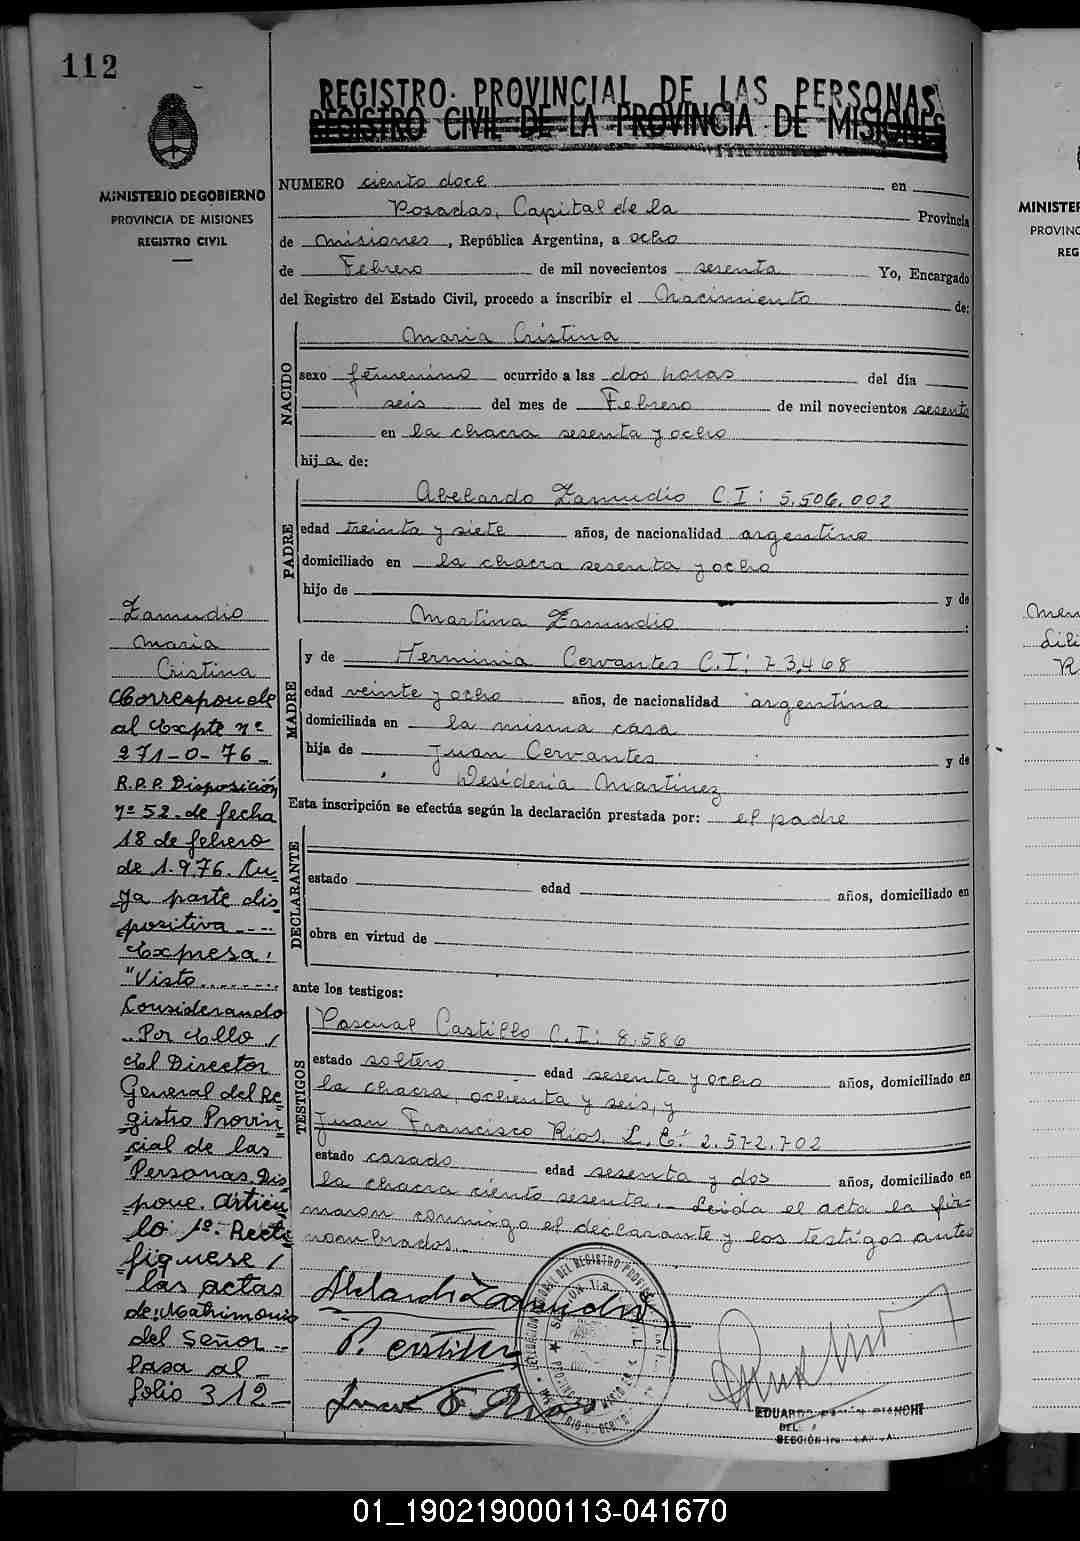 112
MINISTERIO DE GOBIERNO
PROVINCIA DE MISIONES
REGISTRO CIVIL
REGISTRO PROVINCIAL DE LAS PERSONAS
REGISTRO CIVIL DE LA PROVINCIA DE MISIONES
NUMERO ciento doce en
Posadas, Capital de la Provincia
de Misiones, República Argentina, a ocho
de Febrero de mil novecientos sesenta Yo, Encargado
del Registro del Estado Civil, procedo a inscribir el Nacimiento de:
NACIDO
Maria Cristina
sexo femenino ocurrido a las dos horas del día
seis del mes de Febrero de mil novecientos sesenta
en la chacra sesenta y ocho
hija de:
PADRE
Abelardo Zamudio C.I: 5.506.002
edad treinta y siete años, de nacionalidad argentino
domiciliado en la chacra sesenta y ocho
hijo de y de
Martina Zamudio
MADRE
y de Herminia Cervantes C.I: 73,468
edad veinte y ocho años, de nacionalidad argentina
domiciliada en la misma casa
hija de Juan Cervantes y de
Desideria Martinez
Esta inscripción se efectúa según la declaración prestada por: el padre
DECLARANTE
estado edad años, domiciliado en
obra en virtud de
ante los testigos:
TESTIGOS
Pascual Castillo C.I: 8.586
estado soltero edad sesenta y ocho años, domiciliado en
la chacra, ochenta y seis, y
Juan Francisco Rios. L. E: 2.572.702
estado casado edad sesenta y dos años, domiciliado en
la chacra ciento sesenta.. Leída el acta la fir=
maron conmigo el declarante y los testigos antes
nombrados..
Abelardo Zamudio
P. Castillo
Juan F Rios
EDUARDO BIANCHI
Zamudio
Maria
Cristina
Corresponde
al Expte nº
271-0-76-
R.P.P. Disposición
nº 52. de fecha
18 de febrero
de 1.976. Cu=
ya parte dis=
positiva ----
Expresa:
"Visto........
Considerando
..Por Ello /
El Director
General del Re
gistro Provin
cial de las
Personas Dis=
pone. Artícu
lo 1º. Recti
fíquese /
las actas
de: Matrimonio
del Señor--
Pasa al-
folio 312-
MINISTER
PROVINC
REG
01_190219000113-041670